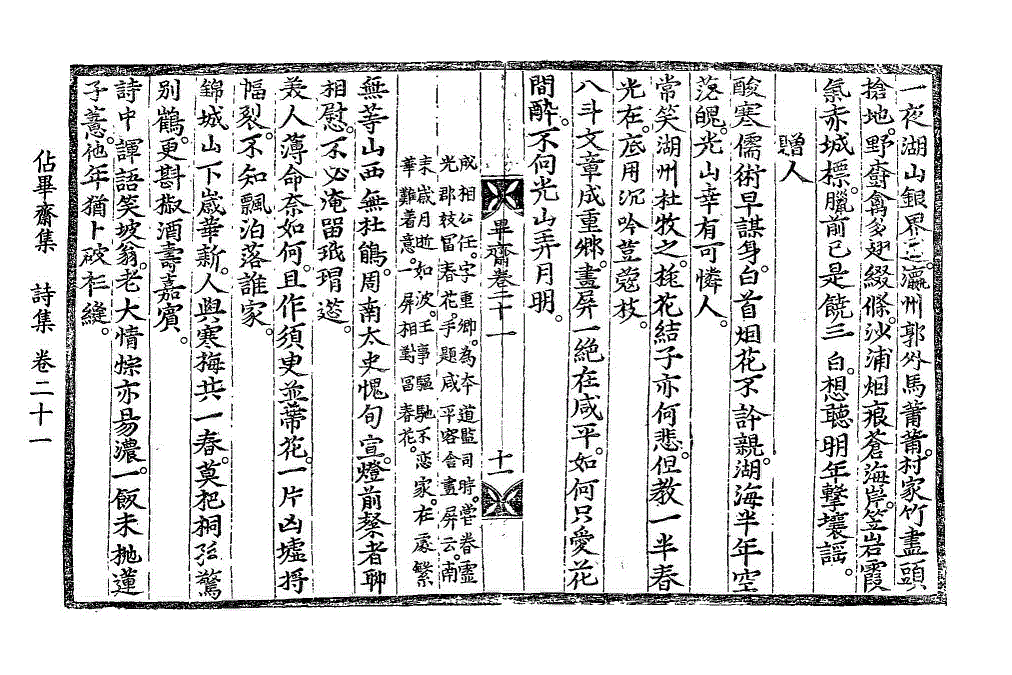 一夜湖山銀界三。瀛州郭外馬莆莆。村家竹盡頭
搶地。野廚禽多翅綴條。沙浦烟痕蒼海岸。笠岩霞
氣赤城標。臘前已是饒三白。想聽明年擊壤謠。
贈人
酸寒儒術早謀身。白首烟花不許親。湖海半年空
落魄。光山幸有可憐人。
常笑湖州杜牧之。㧡花結子亦何悲。但教一半春
光在。底用沉吟荳蔻枝。
八斗文章成重卿。畫屏一絕在咸平。如何只愛花
間醉。不向光山弄月明。
畢齋卷二十一
十一
成相公任。字重卿。為本道監司時。嘗眷靈
光郡妓冨春花。手題咸平客舍畫屏云。南
來歲月逝如波。王事驅馳不戀家。在處繁
華難着意。一屏相對冨春花。
無等山西無杜鵑。周南太史愧旬宣。燈前粲者聊
相慰。不必淹留玳瑁筵。
美人薄命奈如何。且作須臾並蒂花。一片凶墟將
幅裂。不知飄泊落誰家。
錦城山下歲華新。人與寒梅共一春。莫把桐孫驚
別鶴。更斟椒酒壽嘉賓。
詩中譚語笑坡翁。老大情悰亦易濃。一飯未抛蓮
子薏。他年猶卜破衫縫。
佔畢齋集 詩集 卷二十一